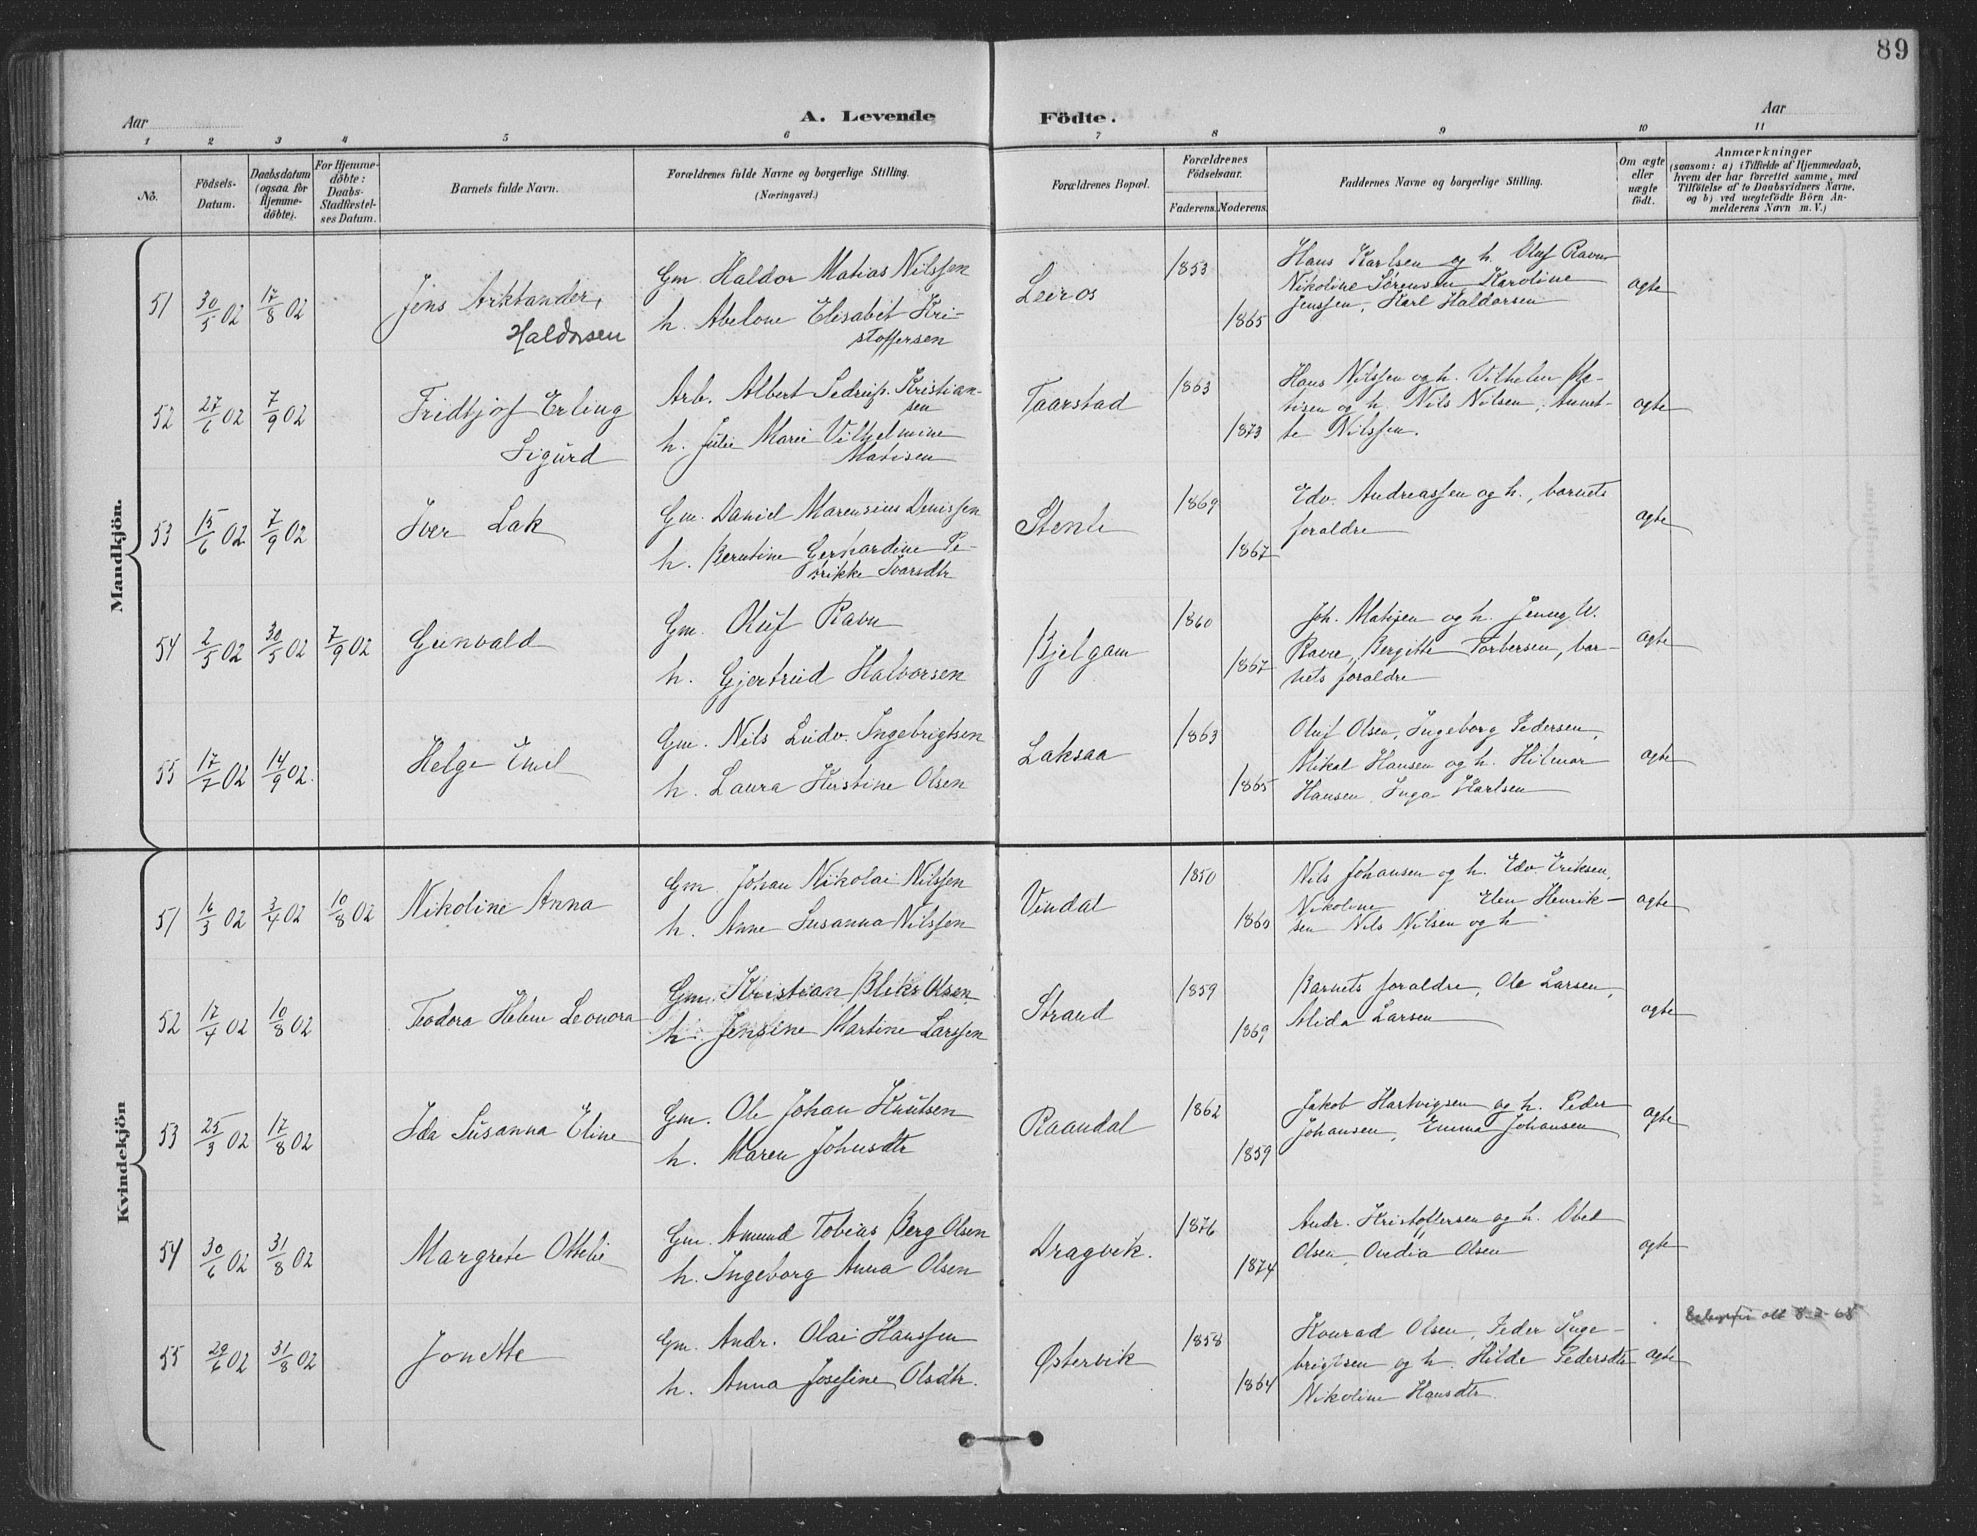 89
Aar
A. Levende
Födte.
Aar
1 2 3 4 5 6 7 8 9 10 11
No.
Födsels-Datum.
Daabsdatum (ogsaa for Hjemme-døbte).
For Hjemme-døbte: Daabs-Stadfæstel-ses Datum.
Barnets fulde Navn.
Forældrenes fulde Navne og borgerlige Stilling.
(Næringsvei.)
Forældrenes Bopæl.
Forældrenes Födselsaar.
Faderens. Moderens.
Faddernes Navne og borgerlige Stilling.
Om ægte eller uægte födt.
Anmærkninger
(saasom: a) i Tilfælde af Hjemmedaab, hvem der har forrettet samme, med Tilföielse af to Daabsvidners Navne, og b) ved uægtefödte Börn An-melderens Navn m. V.)
Mandkjön.
51 30/5 02 17/8 02 Jens Arktander, Haldorsen
Gm Haldor Matias Nilssen
h. Abelone Elisabet Kri-
stoffersen
Leiros 1853 1865
Hans Karlsen og h. Oluf Ravn
Nikoline Sörensen Karoline
Jenssen, Karl Haldorsen
ægte
52 27/6 02 7/9 02 Fridtjof Erling
Sigurd
Arb. Albert Sedrup. Kristian-
sen
h. Julie Marie Vilhelmine
Matisen
Taarstad 1863 1873
Hans Nilssen og h. Vilhelm
og h. Nils Nilsen, Annet-
te Nilssen.
ægte
53 15/6 02 7/9 02 Iver Lak
Gm. Daniel Marensius Denissen
h. Berntine Gerhardine Pe-
trikke Ivarsdtr
Stenli 1869 1867
Edv. Andreassen og h., barnets
foraldre
ægte
54 2/5 02 30/5 02 7/9 02 Gunvald
Gm. Oluf Ravn
h. Gjertrud Halvorsen
Bjelgam 1860 1867
Joh. Matisen og h. Jenny W.
Ravn, Bergitte Torbersen, bar-
nets foraldre
ægte
55 17/7 02 14/9 02. Helge Emil
Gm. Nils Ludv. Ingebrigtsen
h. Laura Kristine Olsen
Laksaa 1863 1865
Oluf Olsen, Ingeborg Pedersen,
Mikal Hansen og h. Hilmar
Hansen, Inga Karlsen
ægte
Kvindekjön
51 16/3 02 3/4 02 10/8 02 Nikoline Anna
Gm. Johan Nikolai Nilssen
h. Anne Susanna Nilssen
Vindal 1850 1860
Nils Johansen og h. Edv. Eriksen,
Nikoline Elen Henrik-
sen Nils Nilsen og h
ægte
52 17/4 02 10/8 02 Teodora Helene Leonora
Gm. Kristian Blikz Olsen
h. Jensine Martine Larssen
Strand 1859 1869
Barnets foraldre, Ole Larsen,
Alida Larsen
ægte
53 25/3 02 17/8 02 Ida Susanna Eline
Gm. Ole Johan Knutsen
h. Maren Johnsdtr
Raandal 1862 1859
Jakob Hartvigsen og h. Peder
Johansen, Emma Johansen
ægte
54 30/6 02 31/8 02 Margrete Ottelie
Gm. Amund Tobias Berg Olsen
h. Ingeborg Anna Olsen
Dragvik. 1876 1874
Andr. Kristoffersen og h. Obed
Olsen, Ovidia Olsen
ægte
55 29/6 02 31/8 02 Jonette
Gm. Andr. Olai Hanssen
h. Anna Josefine Olsdtr.
Østervik 1858 1864
Konrad Olsen, Peder Inge-
brigtsen og h. Hilde Pedersdtr
Nikoline Hansdtr.
ægte